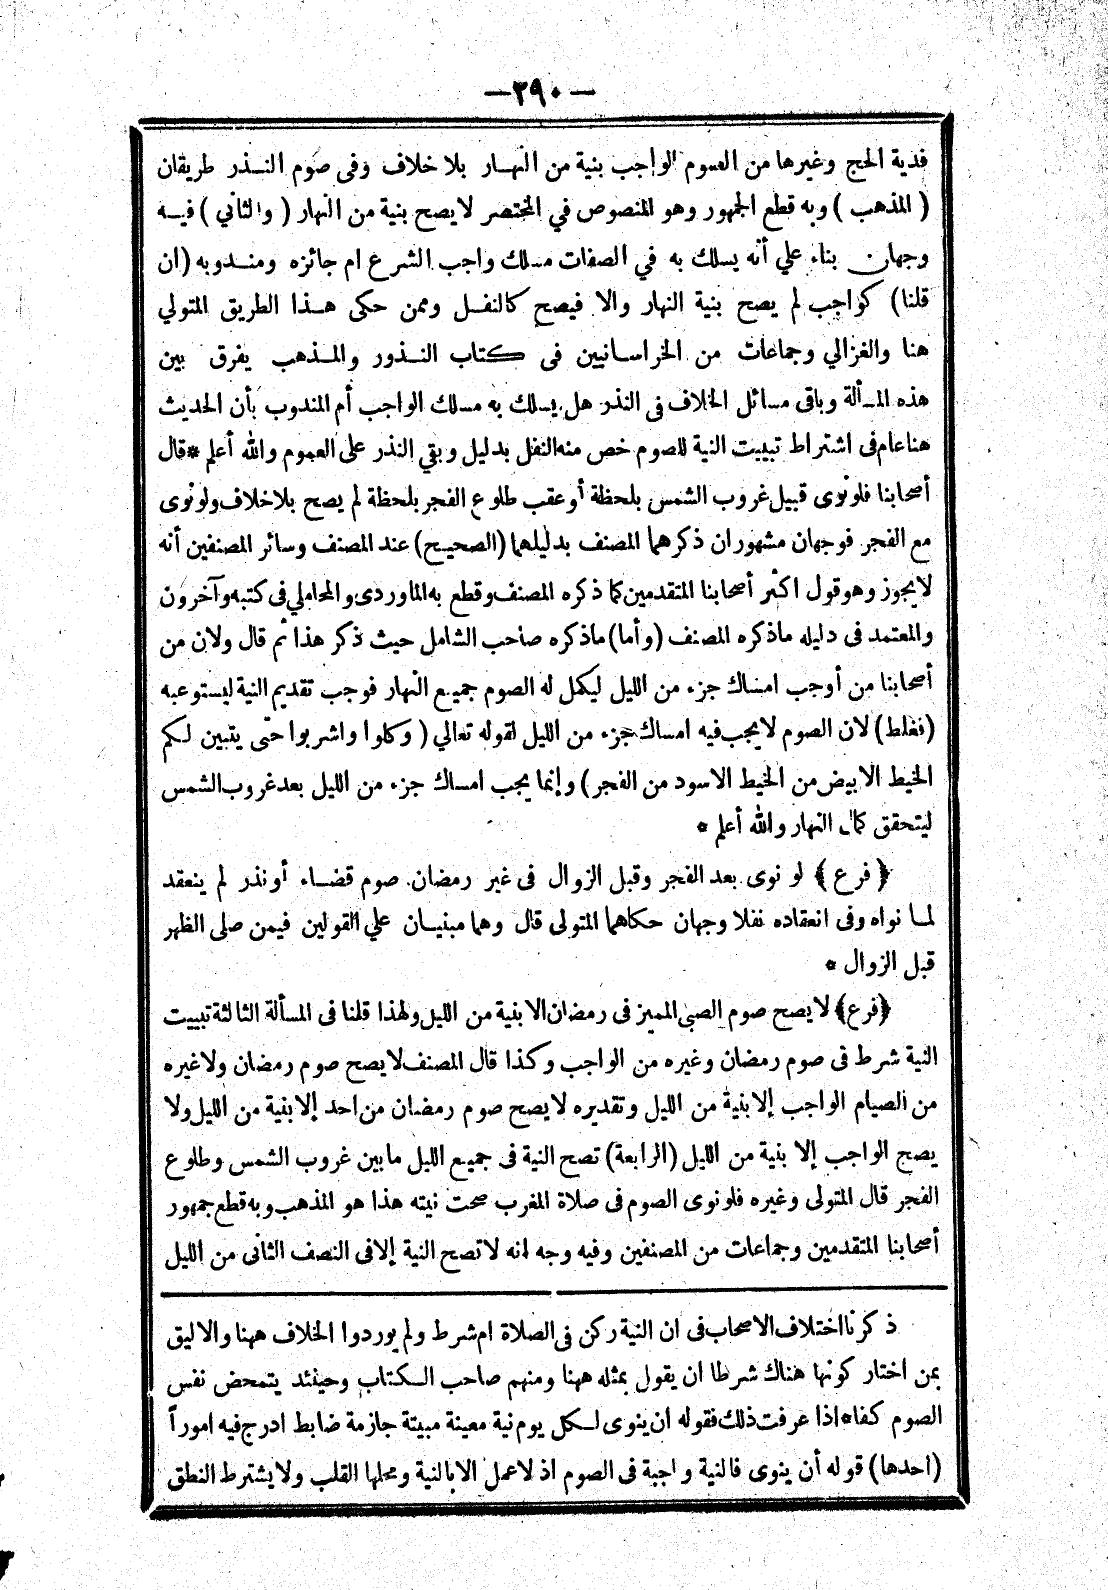 —٢٩٠—
فدية الحج وغيرها من الصوم الواجب بنية من النهار بلا خلاف وفى صوم النذر طريقان
( المذهب ) وبه قطع الجمهور وهو المنصوص في المختصر لا يصح بنية من النهار ( والثاني ) فيه
وجهان بناء علي أنه يسلك به في الصفات مسلك واجب الشرع ام جائزه ومندوبه (ان
قلنا) كواجب لم يصح بنية النهار والا فيصح كالنفل وممن حكى هذا الطريق المتولي
هنا والغزالي وجماعات من الخراسانيين فى كتاب النذور والمذهب يفرق بين
هذه المسألة وباقى مسائل الخلاف فى النذر هل يسلك به مسلك الواجب أم المندوب بأن الحديث
هنا عام فى اشتراط تبييت النية للصوم خص منه النفل بدليل وبقي النذر على العموم والله أعلم * قال
أصحابنا فلو نوى قبيل غروب الشمس بلحظة أو عقب طلوع الفجر بلحظة لم يصح بلا خلاف ولو نوى
مع الفجر فوجهان مشهوران ذكرهما المصنف بدليلهما (الصحيح) عند المصنف وسائر المصنفين أنه
لا يجوز وهو قول اكثر أصحابنا المتقدمين كما ذكره المصنف وقطع به الماوردى والمحاملي فى كتبه وآخرون
والمعتمد فى دليله ما ذكره المصنف (وأما) ما ذكره صاحب الشامل حيث ذكر هذا ثم قال ولان من
أصحابنا من أوجب امساك جزء من الليل ليكمل له الصوم جميع النهار فوجب تقديم النية ليستوعبه
(فغلط) لان الصوم لا يجب فيه امساك جزء من الليل لقوله تعالي ( وكلوا واشربوا حتى يتبين لكم
الخيط الابيض من الخيط الاسود من الفجر ) وإنما يجب امساك جزء من الليل بعد غروب الشمس
ليتحقق كمال النهار والله أعلم *
﴿ فرع ﴾ لو نوى بعد الفجر وقبل الزوال فى غير رمضان صوم قضاء أو نذر لم ينعقد
لما نواه وفى انعقاده نفلا وجهان حكاهما المتولى قال وهما مبنيان علي القولين فيمن صلى الظهر
قبل الزوال *
﴿فرع﴾ لا يصح صوم الصبى المميز فى رمضان الا بنية من الليل ولهذا قلنا فى المسألة الثالثة تبييت
النية شرط فى صوم رمضان وغيره من الواجب وكذا قال المصنف لا يصح صوم رمضان ولا غيره
من الصيام الواجب إلا بنية من الليل وتقديره لا يصح صوم رمضان من احد إلا بنية من الليل ولا
يصح الواجب إلا بنية من الليل (الرابعة) تصح النية فى جميع الليل ما بين غروب الشمس وطلوع
الفجر قال المتولى وغيره فلو نوى الصوم فى صلاة المغرب صحت نيته هذا هو المذهب وبه قطع جمهور
أصحابنا المتقدمين وجماعات من المصنفين وفيه وجه انه لا تصح النية إلا فى النصف الثانى من الليل
ذكرنا اختلاف الاصحاب فى ان النية ركن فى الصلاة ام شرط ولم يوردوا الخلاف ههنا والاليق
بمن اختار كونها هناك شرطا ان يقول بمثله ههنا ومنهم صاحب الكتاب وحينئذ يتمحض نفس
الصوم كفا* اذا عرفت ذلك فقوله ان ينوى لكل يوم نية معينة مبيتة جازمة ضابط ادرج فيه اموراً
(احدها) قوله أن ينوى فالنية واجبة فى الصوم اذ لا عمل الا بالنية ومحلها القلب ولا يشترط النطق